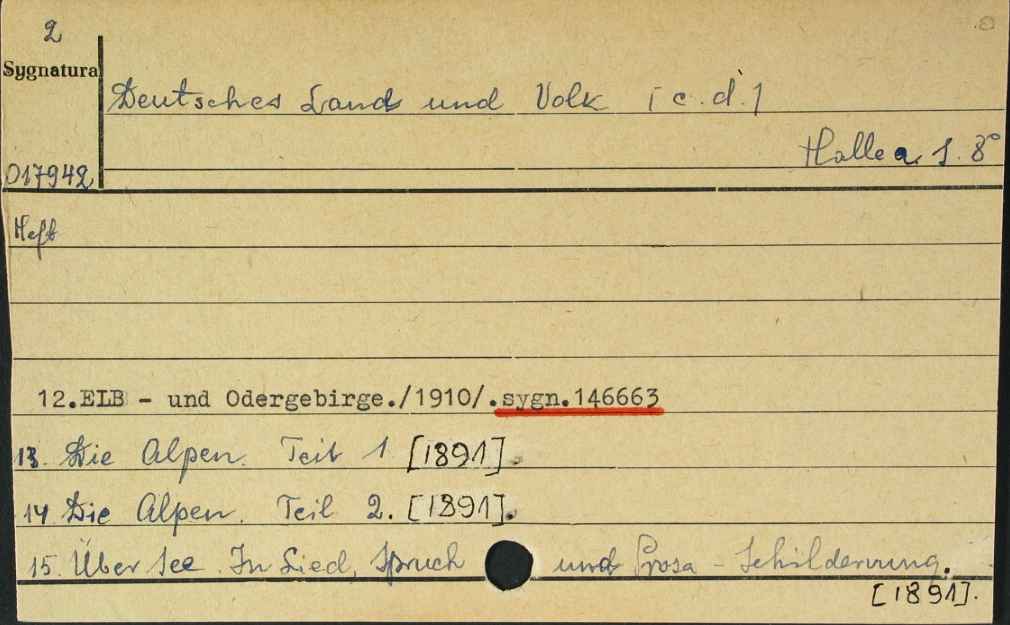 2
Sygnatura
Deutsches Land und Volk [c.d.]
Halle a. S. 8°
017942
Heft
12.ELB - und Odergebirge./1910/.sygn.146663
13. Die Alpen. Teil 1 [1891].
14 Die Alpen. Teil 2. [1891].
15. Über See. In Lied, Spruch und Prosa - Schilderung.
[1891].